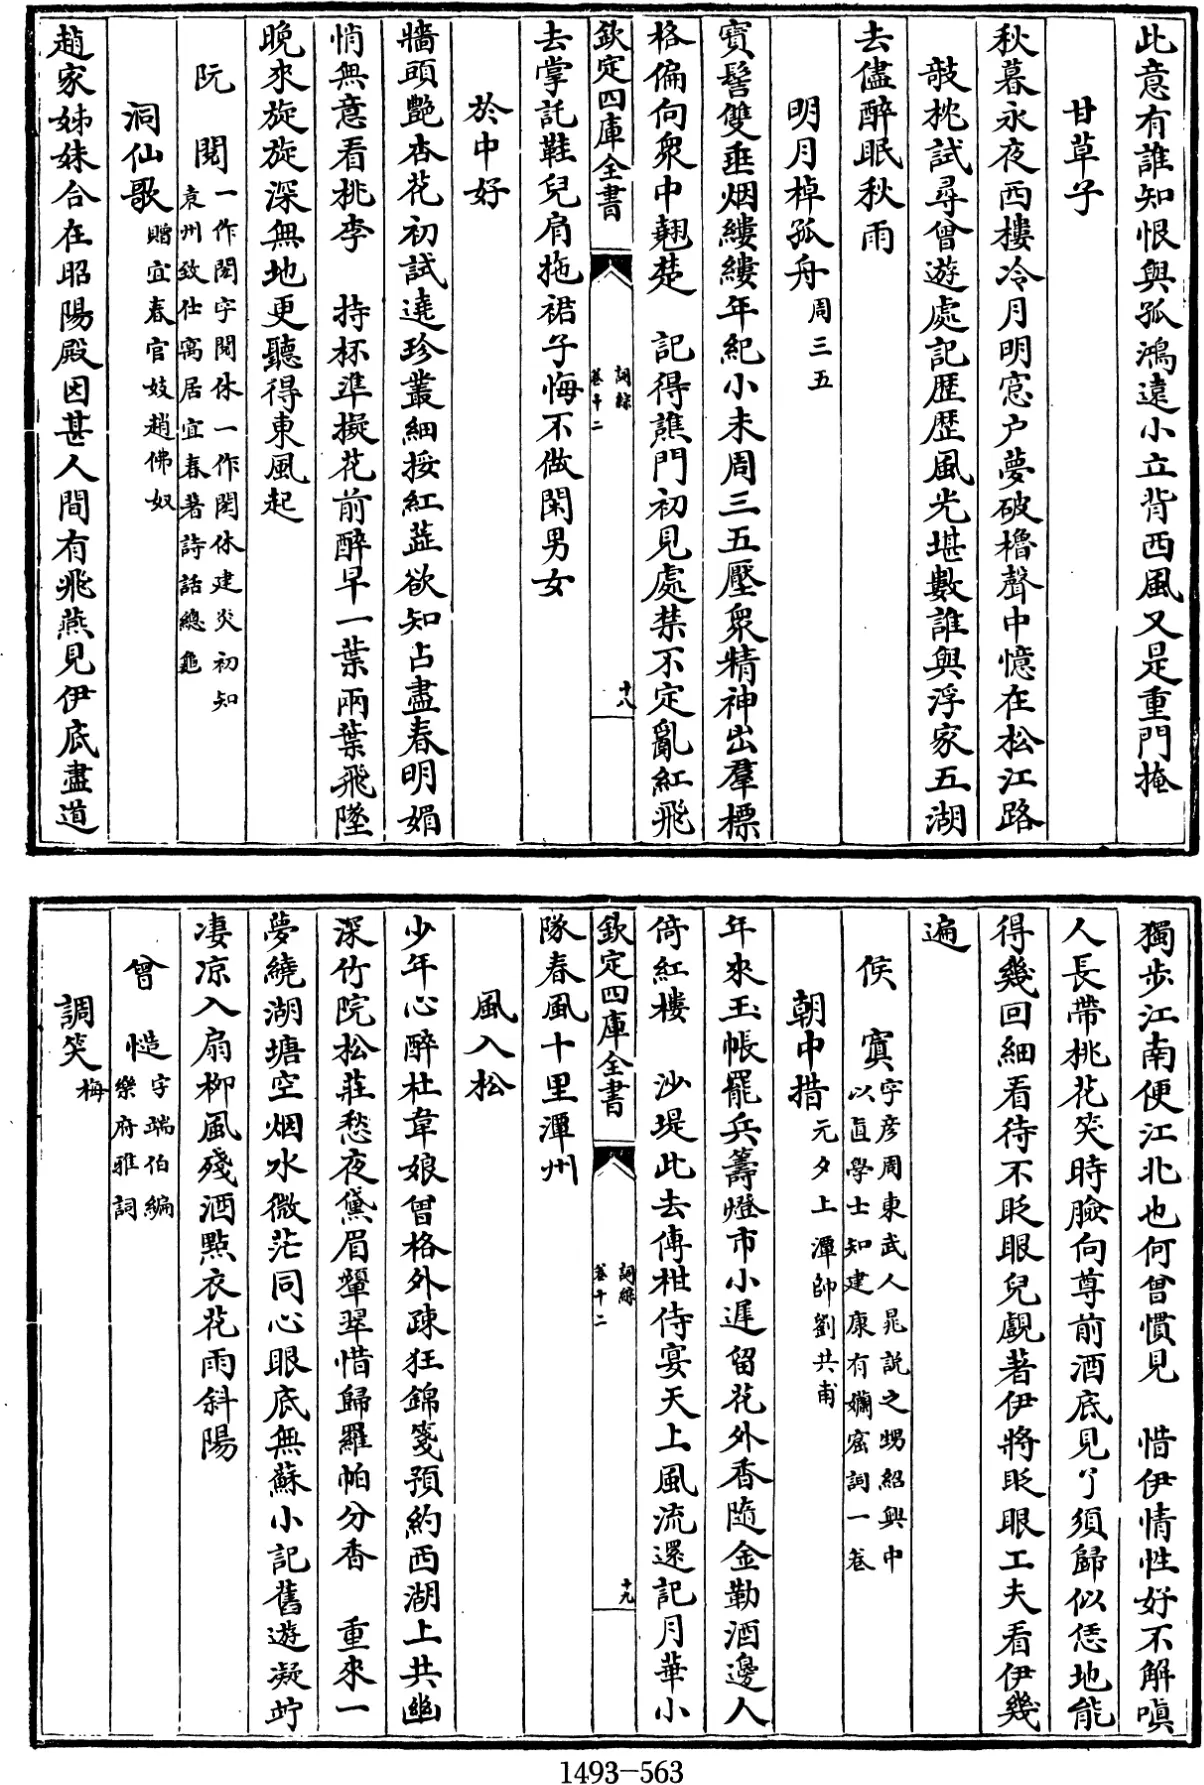 此意有誰知恨與孤鴻遠小立背西風又是重門掩
甘草子
秋暮永夜西樓冷月明窻户夢破櫓聲中憶在松江路
敧枕試尋曾遊處記歴歴風光堪數誰與浮家五湖
去儘醉眠秋雨
明月棹孤舟周三五
寳髻雙垂烟縷縷年紀小未周三五壓衆精神出羣標
格偏向衆中翹楚　記得譙門初見處禁不定亂紅飛
欽定四庫全書
詞綜
卷十二
十八
去掌託鞋兒肩拖裙子悔不做閑男女
於中好
牆頭艷杏花初試遶珍叢細挼紅蕋欲知占盡春明媚
悄無意看桃李　持杯準擬花前醉早一葉兩葉飛墜
晚來旋旋深無地更聽得東風起
阮　閱一作閎字閎休一作閲休建炎初知
袁州致仕寓居宜春著詩話總龜
洞仙歌贈宜春官妓趙佛奴
趙家姊妹合在昭陽殿因甚人間有飛燕見伊底盡道
獨步江南便江北也何曾慣見　惜伊情性好不解嗔
人長帶桃花笑時臉向尊前酒底見了須歸似恁地能
得幾回細看待不眨眼兒覷著伊將眨眼工夫看伊幾
遍
侯　寘字彦周東武人晁說之甥紹興中
以直學士知建康有嬾窟詞一卷
朝中措元夕上潭帥劉共甫
年來玉帳罷兵籌燈市小遲留花外香隨金勒酒邊人
倚紅樓　沙堤此去傳柑侍宴天上風流還記月華小
欽定四庫全書
詞綜
卷十二
十九
隊春風十里潭州
風入松
少年心醉杜韋娘曾格外疎狂錦箋預約西湖上共幽
深竹院松莊愁夜黛眉顰翠惜歸羅帕分香　重來一
夢繞湖塘空烟水微茫同心眼底無蘇小記舊遊凝竚
凄凉入扇柳風殘酒點衣花雨斜陽
曾　慥字端伯編
樂府雅詞
調笑梅
1493—563